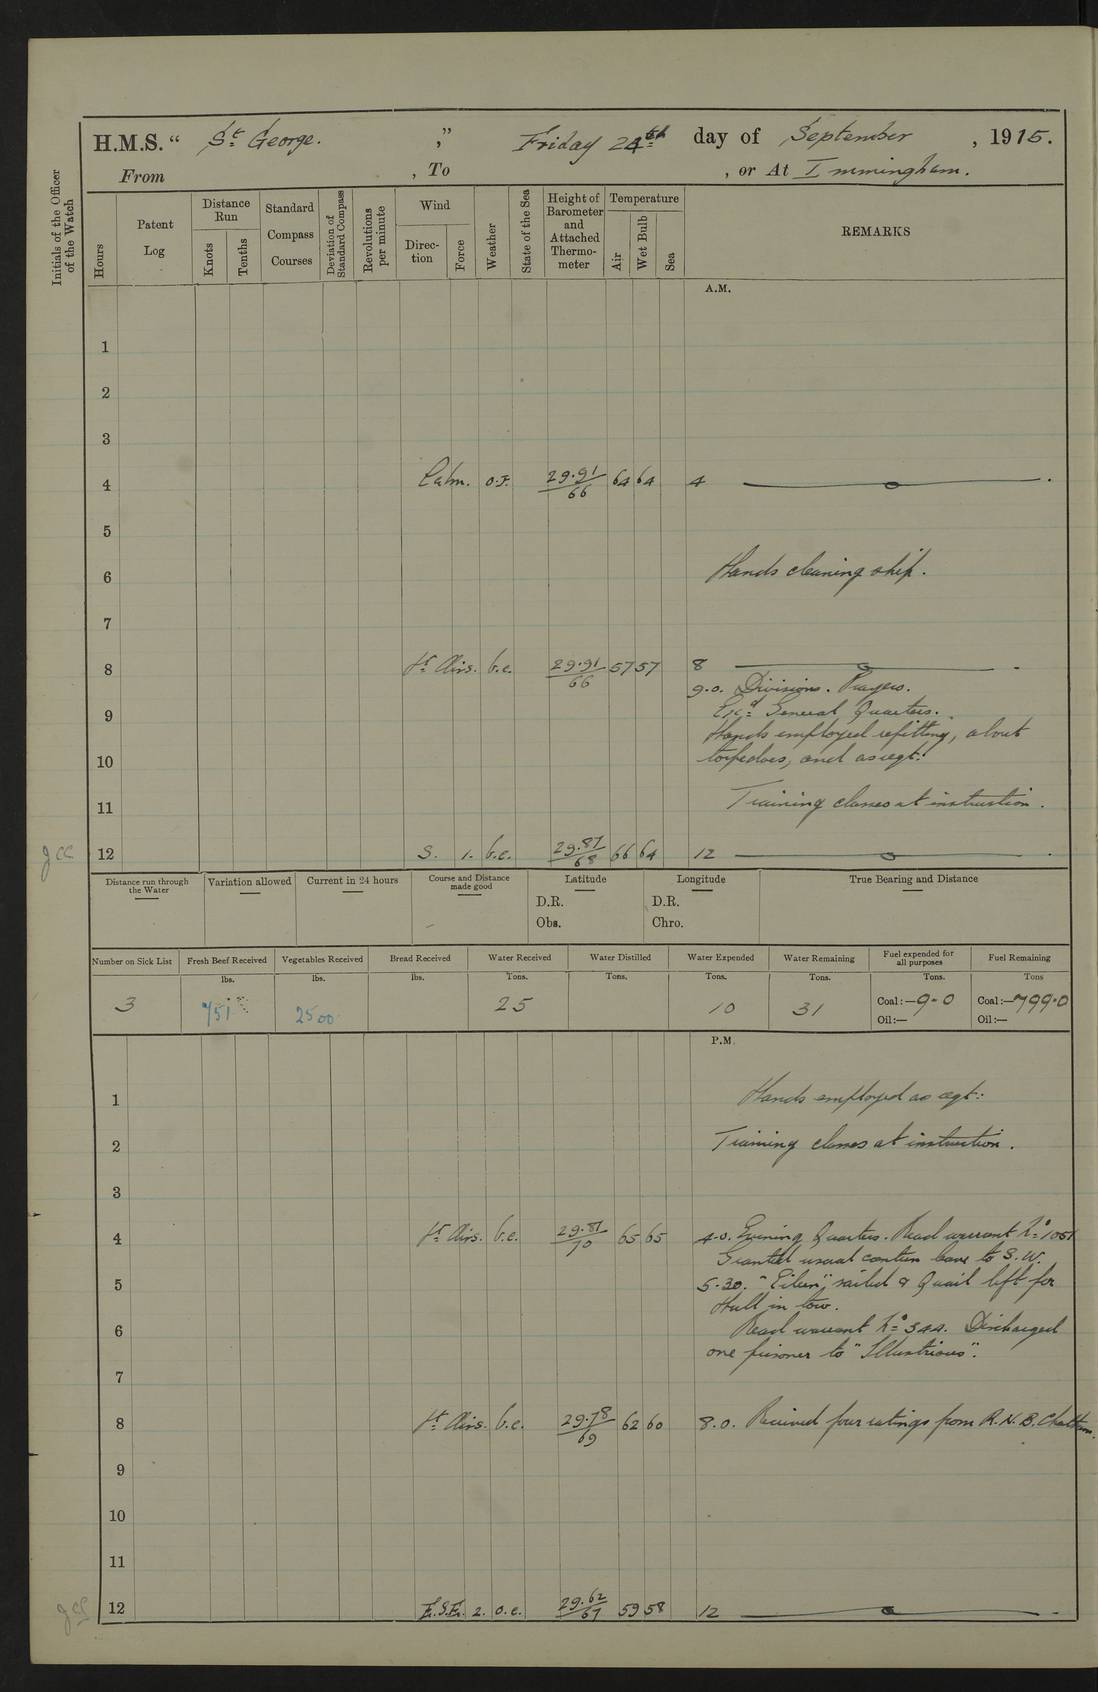 H.M.S. “ St George. ” Friday 24th day of September, 1915.
From , To , or At Immingham.
Initials of the Officer of the Watch
Hours
Patent Log
Distance Run
Knots
Tenths
Standard Compass Courses
Deviation of Standard Compass
Revolutions per minute
Wind
Direc-tion
Force
Weather
State of the Sea
Height of Barometer and Attached Thermo-meter
Temperature
Air
Wet Bulb
Sea
REMARKS
A.M.
1
2
3
4 Calm. o.f. 29.91/66 64 64 4
5
6 Hands cleaning ship.
7
8 Lt Airs. b.c. 29.91/66 57 57 8
9.0. Divisions. Prayers.
9 Exd General Quarters.
Hands employed refitting, about
10 torpedoes, and as reqt:
11 Training classes at instruction.
JCC 12 S. 1. b.c. 29.87/68 66 64 12
Distance run through the Water
Variation allowed
Current in 24 hours
Course and Distance made good
Latitude
D.R.
Obs.
Longitude
D.R.
Chro.
True Bearing and Distance
Number on Sick List
Fresh Beef Received
Vegetables Received
Bread Received
Water Received
Water Distilled
Water Expended
Water Remaining
Fuel expended for all purposes
Fuel Remaining
lbs. lbs. lbs. Tons. Tons. Tons. Tons. Tons. Tons
3 751 2500 25 10 31 Coal:—9.0 Coal:—799.0
Oil:— Oil:—
P.M.
1 Hands employed as reqt:
2 Training classes at instruction.
3
4 Lt Airs. b.c. 29.81/70 65 65 4.0. Evening Quarters. Read warrant No 1051
Granted usual leave to S.W.
5 5.30. "Eileen" sailed & Quail left for
Hull in tow.
6 Read warrant No 344. Discharged
one prisoner to "Illustrious".
7
8 Lt Airs. b.c. 29.78/69 62 60 8.0. Received four ratings from R.N.B. Chatham.
9
10
11
12 E.S.E. 2. o.c. 29.62/67 59 58 12